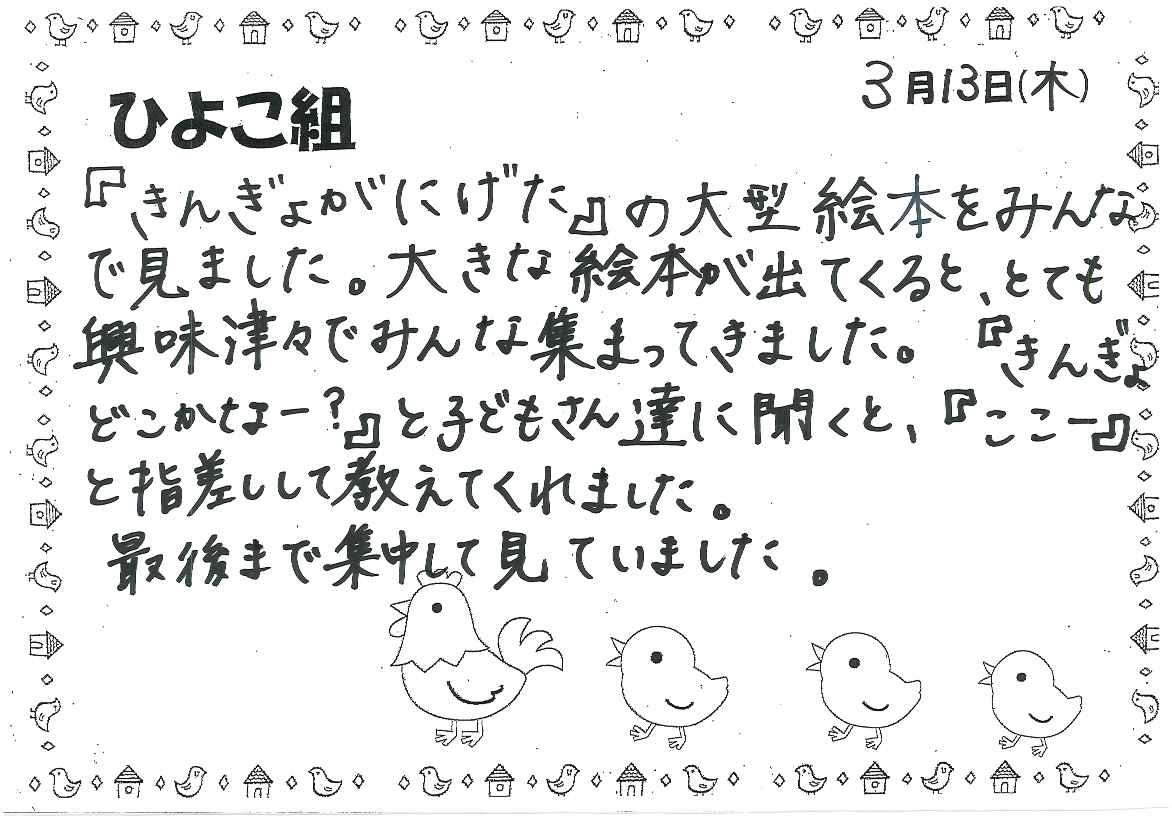 3月13日(木)
ひよこ組
『きんぎょがにげた』の大型絵本をみんな
で見ました。大きな絵本が出てくると、とても
興味津々でみんな集まってきました。『きんぎょ
どこかなー?』と子どもさん達に聞くと、『ここー』
と指差しして教えてくれました。
最後まで集中して見ていました。